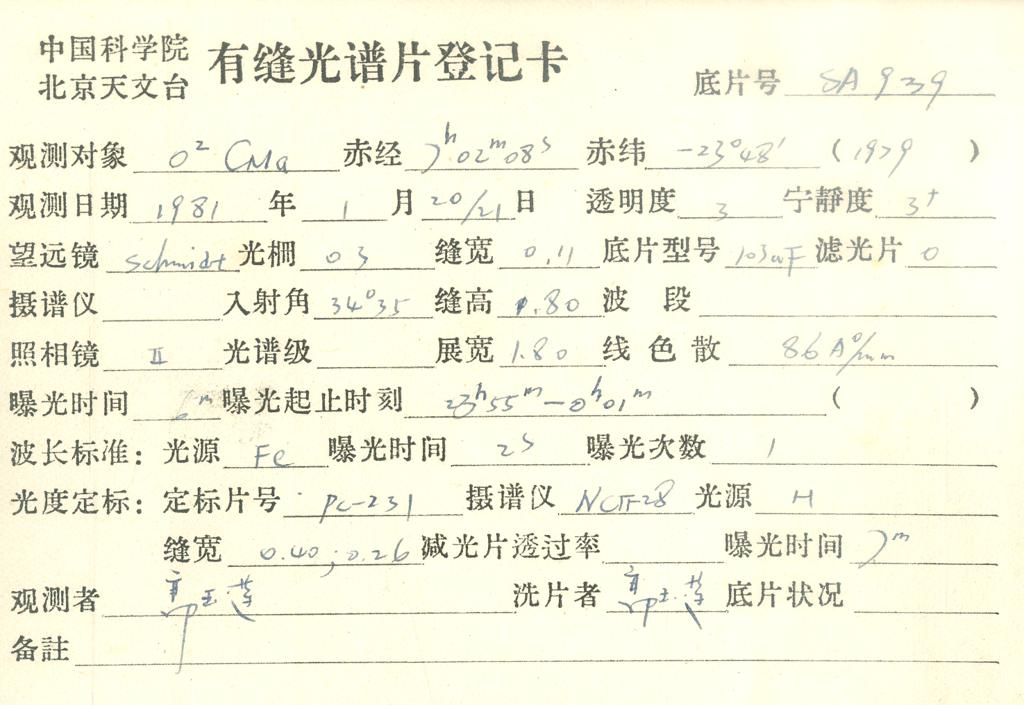 中国科学院
北京天文台
有缝光谱片登记卡
底片号 SA 939
观测对象 O² CMa 赤经 7ʰ02ᵐ08ˢ 赤纬 -23°48′ (1979)
观测日期 1981 年 1 月 20/21 日 透明度 3 宁静度 3⁺
望远镜 Schmidt 光栅 03 缝宽 0.11 底片型号 103aF 滤光片 0
摄谱仪 入射角 34°35 缝高 1.80 波段
照相镜 II 光谱级 展宽 1.80 线色散 86 A°/mm
曝光时间 6ᵐ 曝光起止时刻 23ʰ55ᵐ—0ʰ01ᵐ ( )
波长标准: 光源 Fe 曝光时间 2ˢ 曝光次数 1
光度定标: 定标片号 PC-231 摄谱仪 光源 H
缝宽 0.40; 0.26 减光片透过率 曝光时间 7ᵐ
观测者 郭玉莲 洗片者 郭玉莲 底片状况
备註